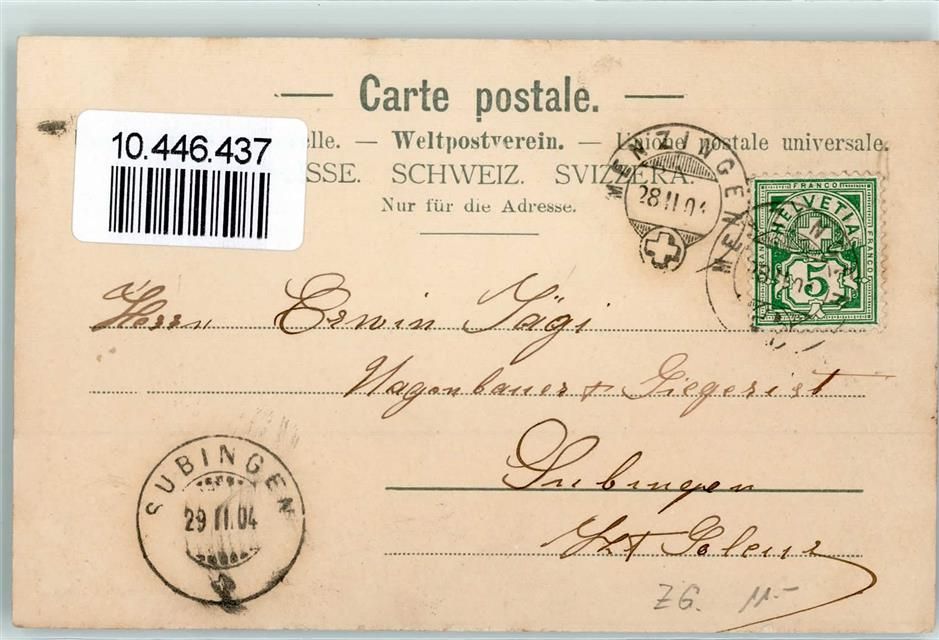 Carte postale.
10.446.437
elle. — Weltpostverein. — Unione postale universale.
SSE. SCHWEIZ. SVIZZERA.
Nur für die Adresse.
MENZINGEN
28 II 04
FRANCO
HELVETIA
FRANCO
FRANCO
5
Herrn Erwin Jägi
Wagenbauer &
Subingen
Kt Soleure
SUBINGEN
29 II 04
ZG. 11.-